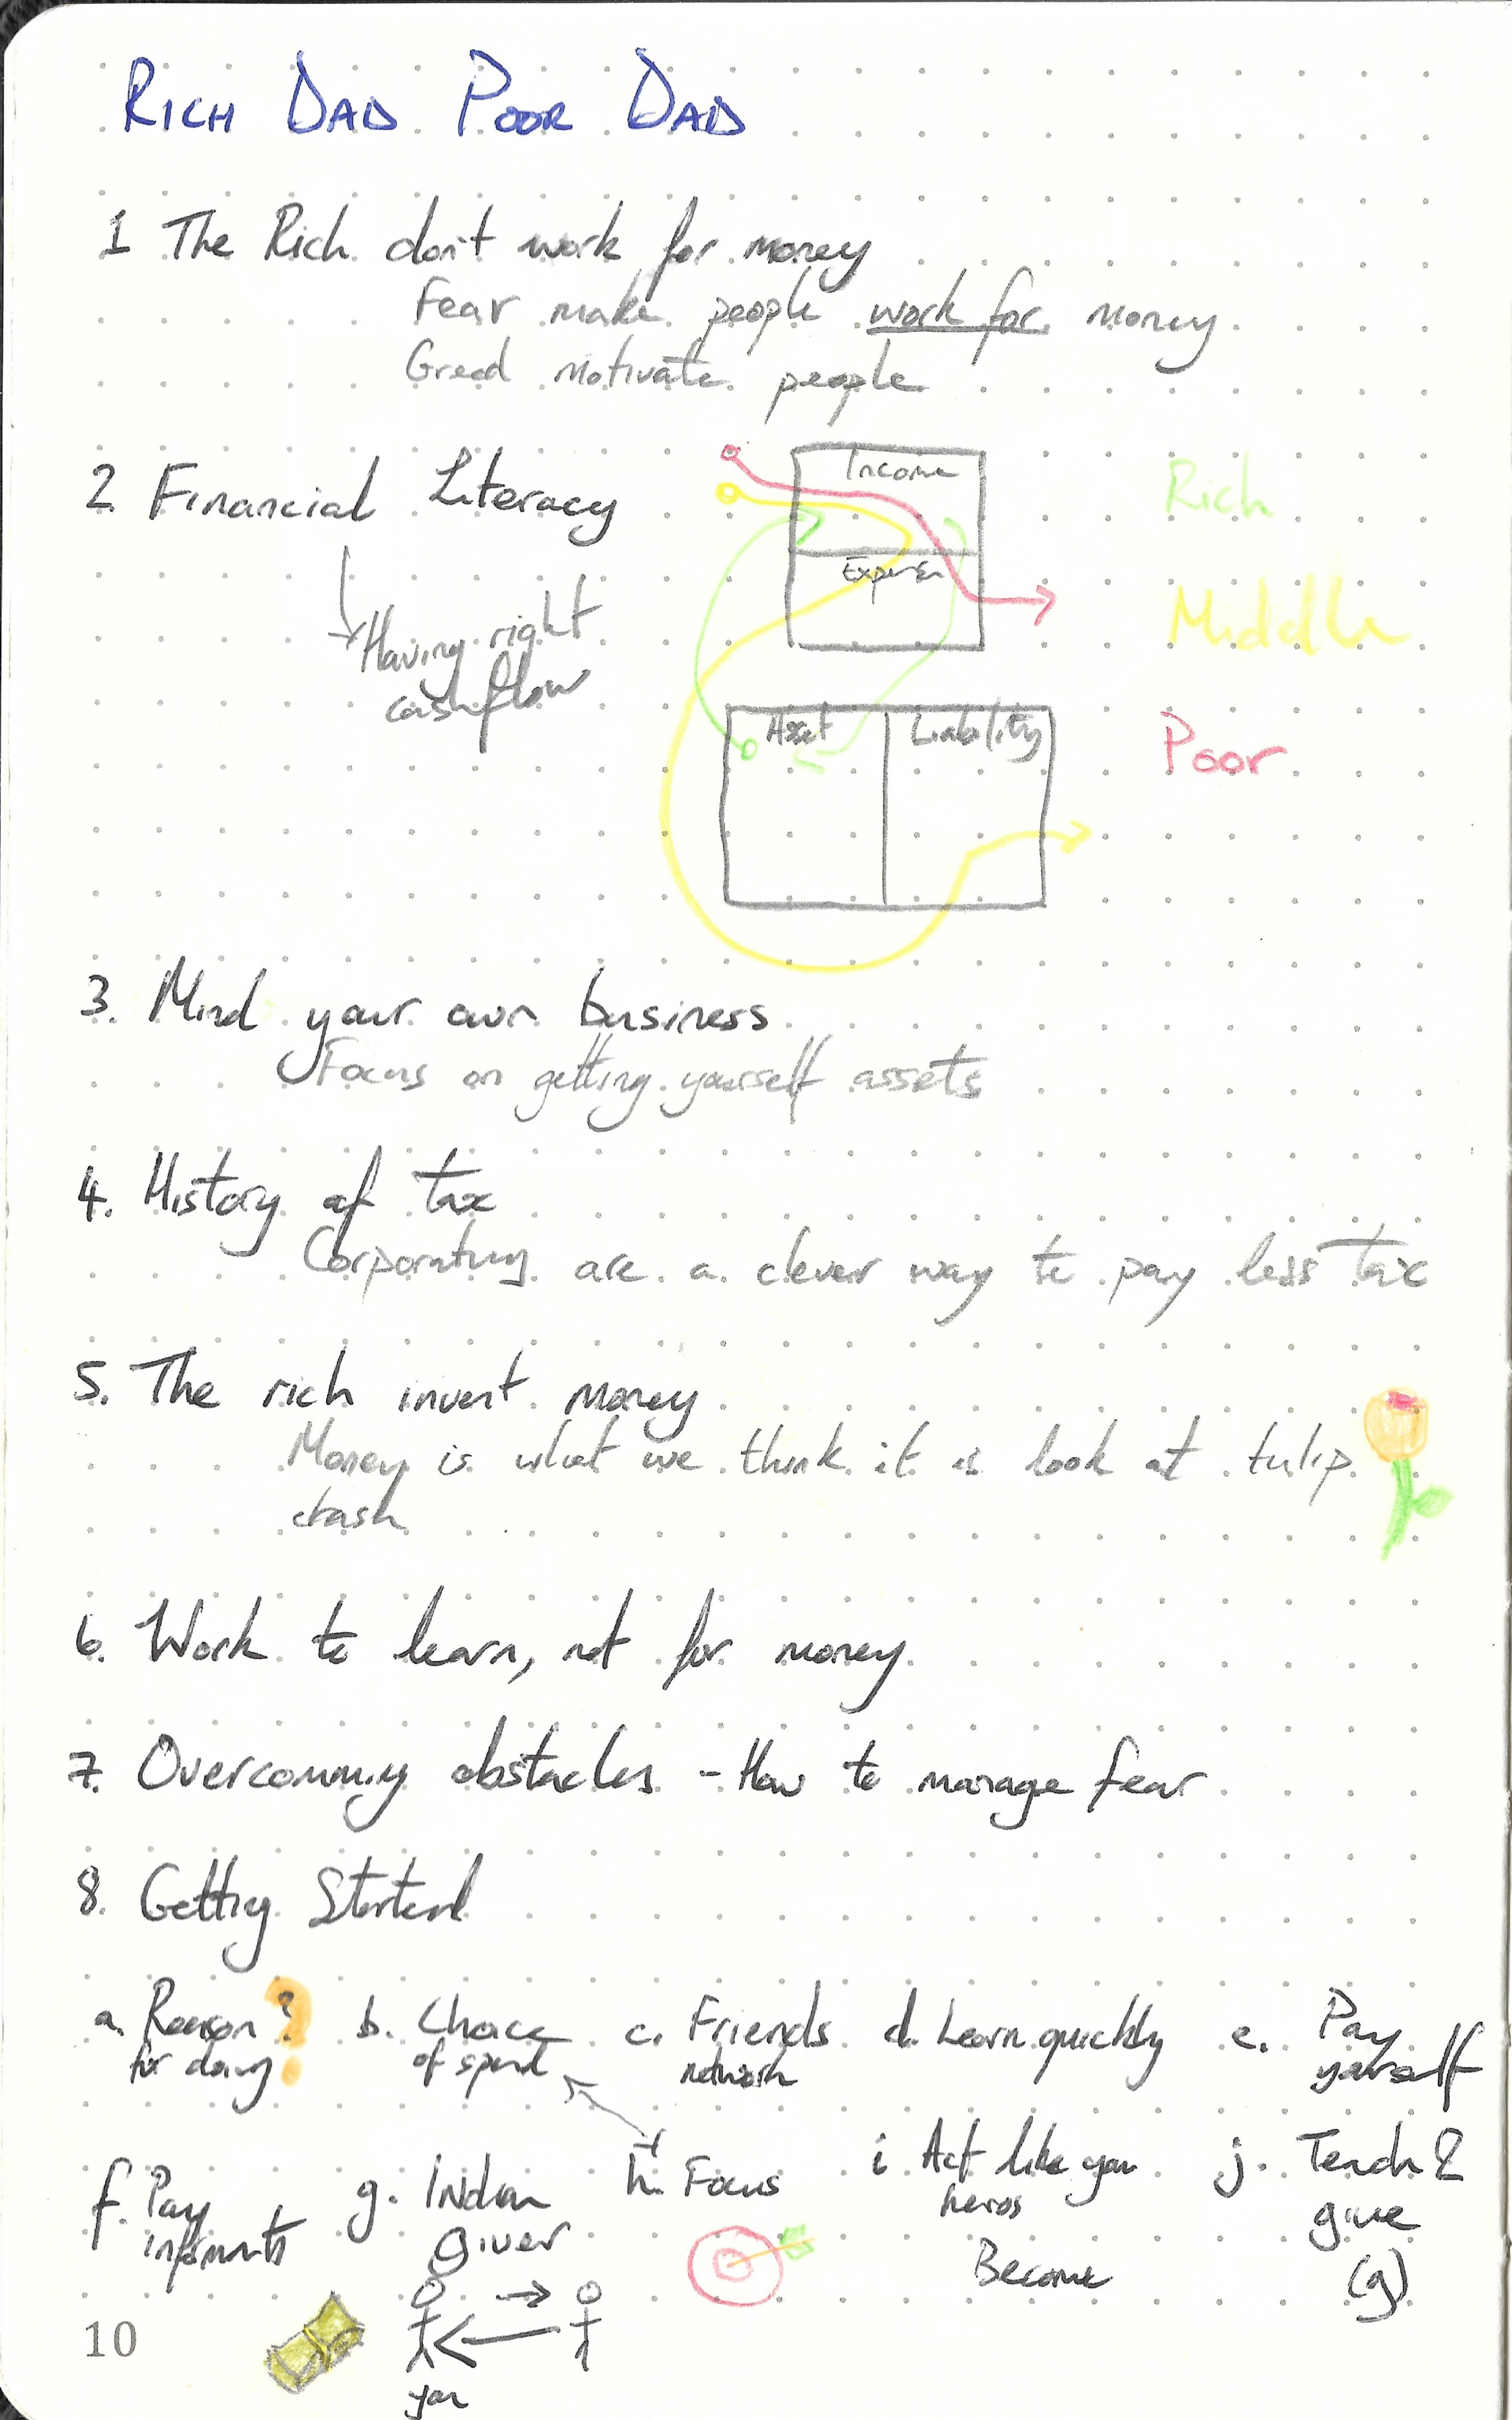 RICH DAD POOR DAD
1 The Rich don't work for money
Fear make people work for money
Greed motivate people
2 Financial Literacy
Having right
cashflow
Income
Expense
Asset
Liability
Rich
Middle
Poor
3. Mind your own business
Focus on getting yourself assets
4. History of tax
are a clever way to pay less tax
5. The rich invent money
Money is what we think it is look at tulip
crash
6. Work to learn, not for money
7. Overcoming obstacles - How to manage fear
8. Getting Started
a. Reason?
for doing
b. Choice
of spend
c. Friends
network
d. Learn quickly
e. Pay
yourself
f. Pay
g. Indian
Giver
you
h. Focus
i Act like you
heros
Become
j. Teach &
give
(g)
10